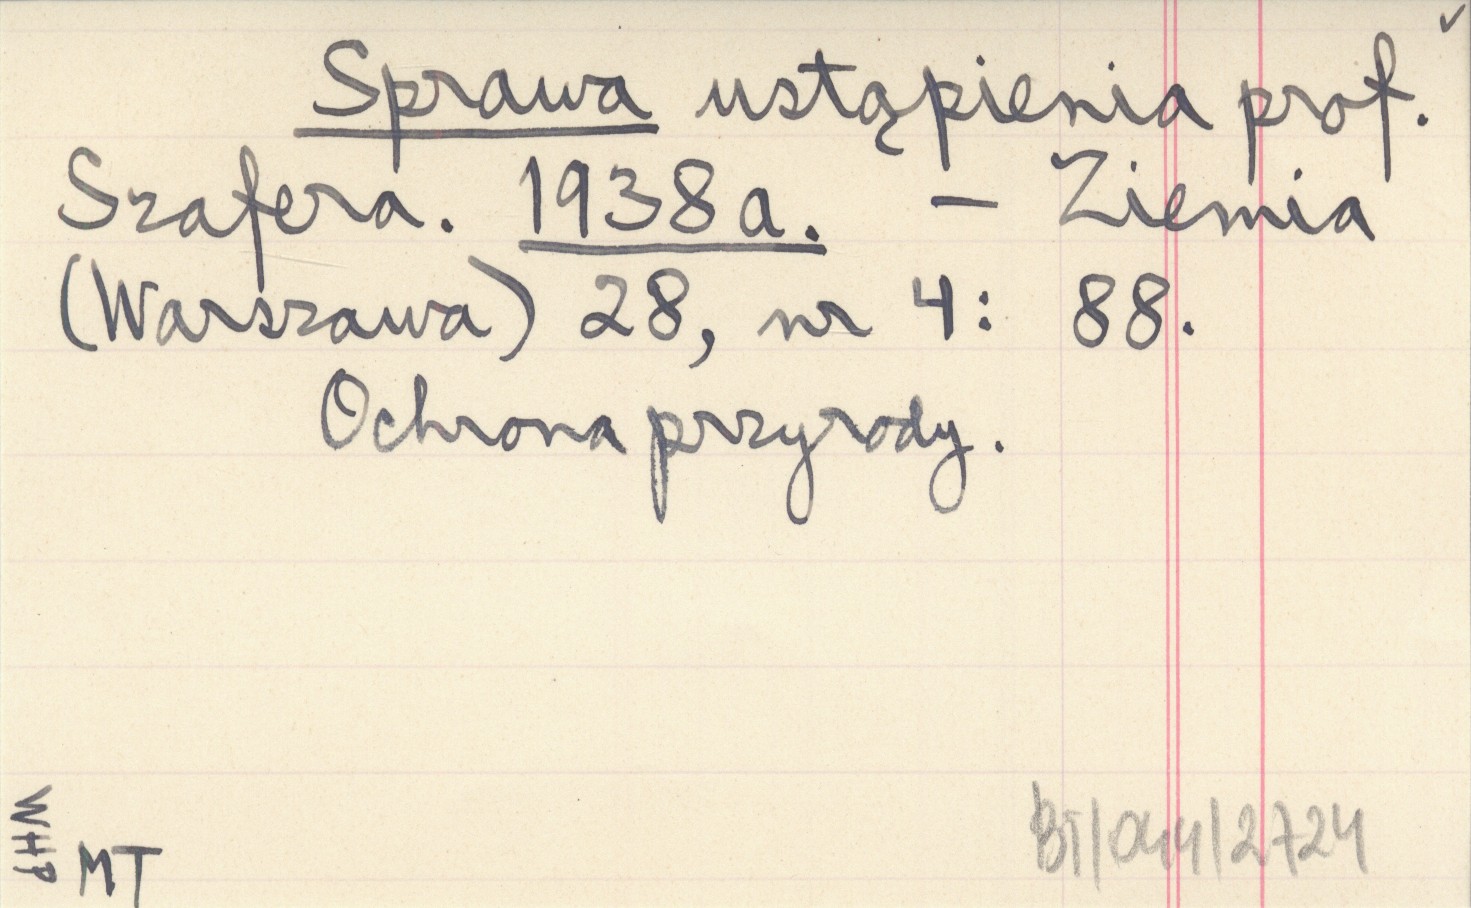 Sprawa ustąpienia prof.
Szafera. 1938a. – Ziemia
(Warszawa) 28, nr 4: 88.
Ochrona przyrody.
WHP
MT
BT/044/2724